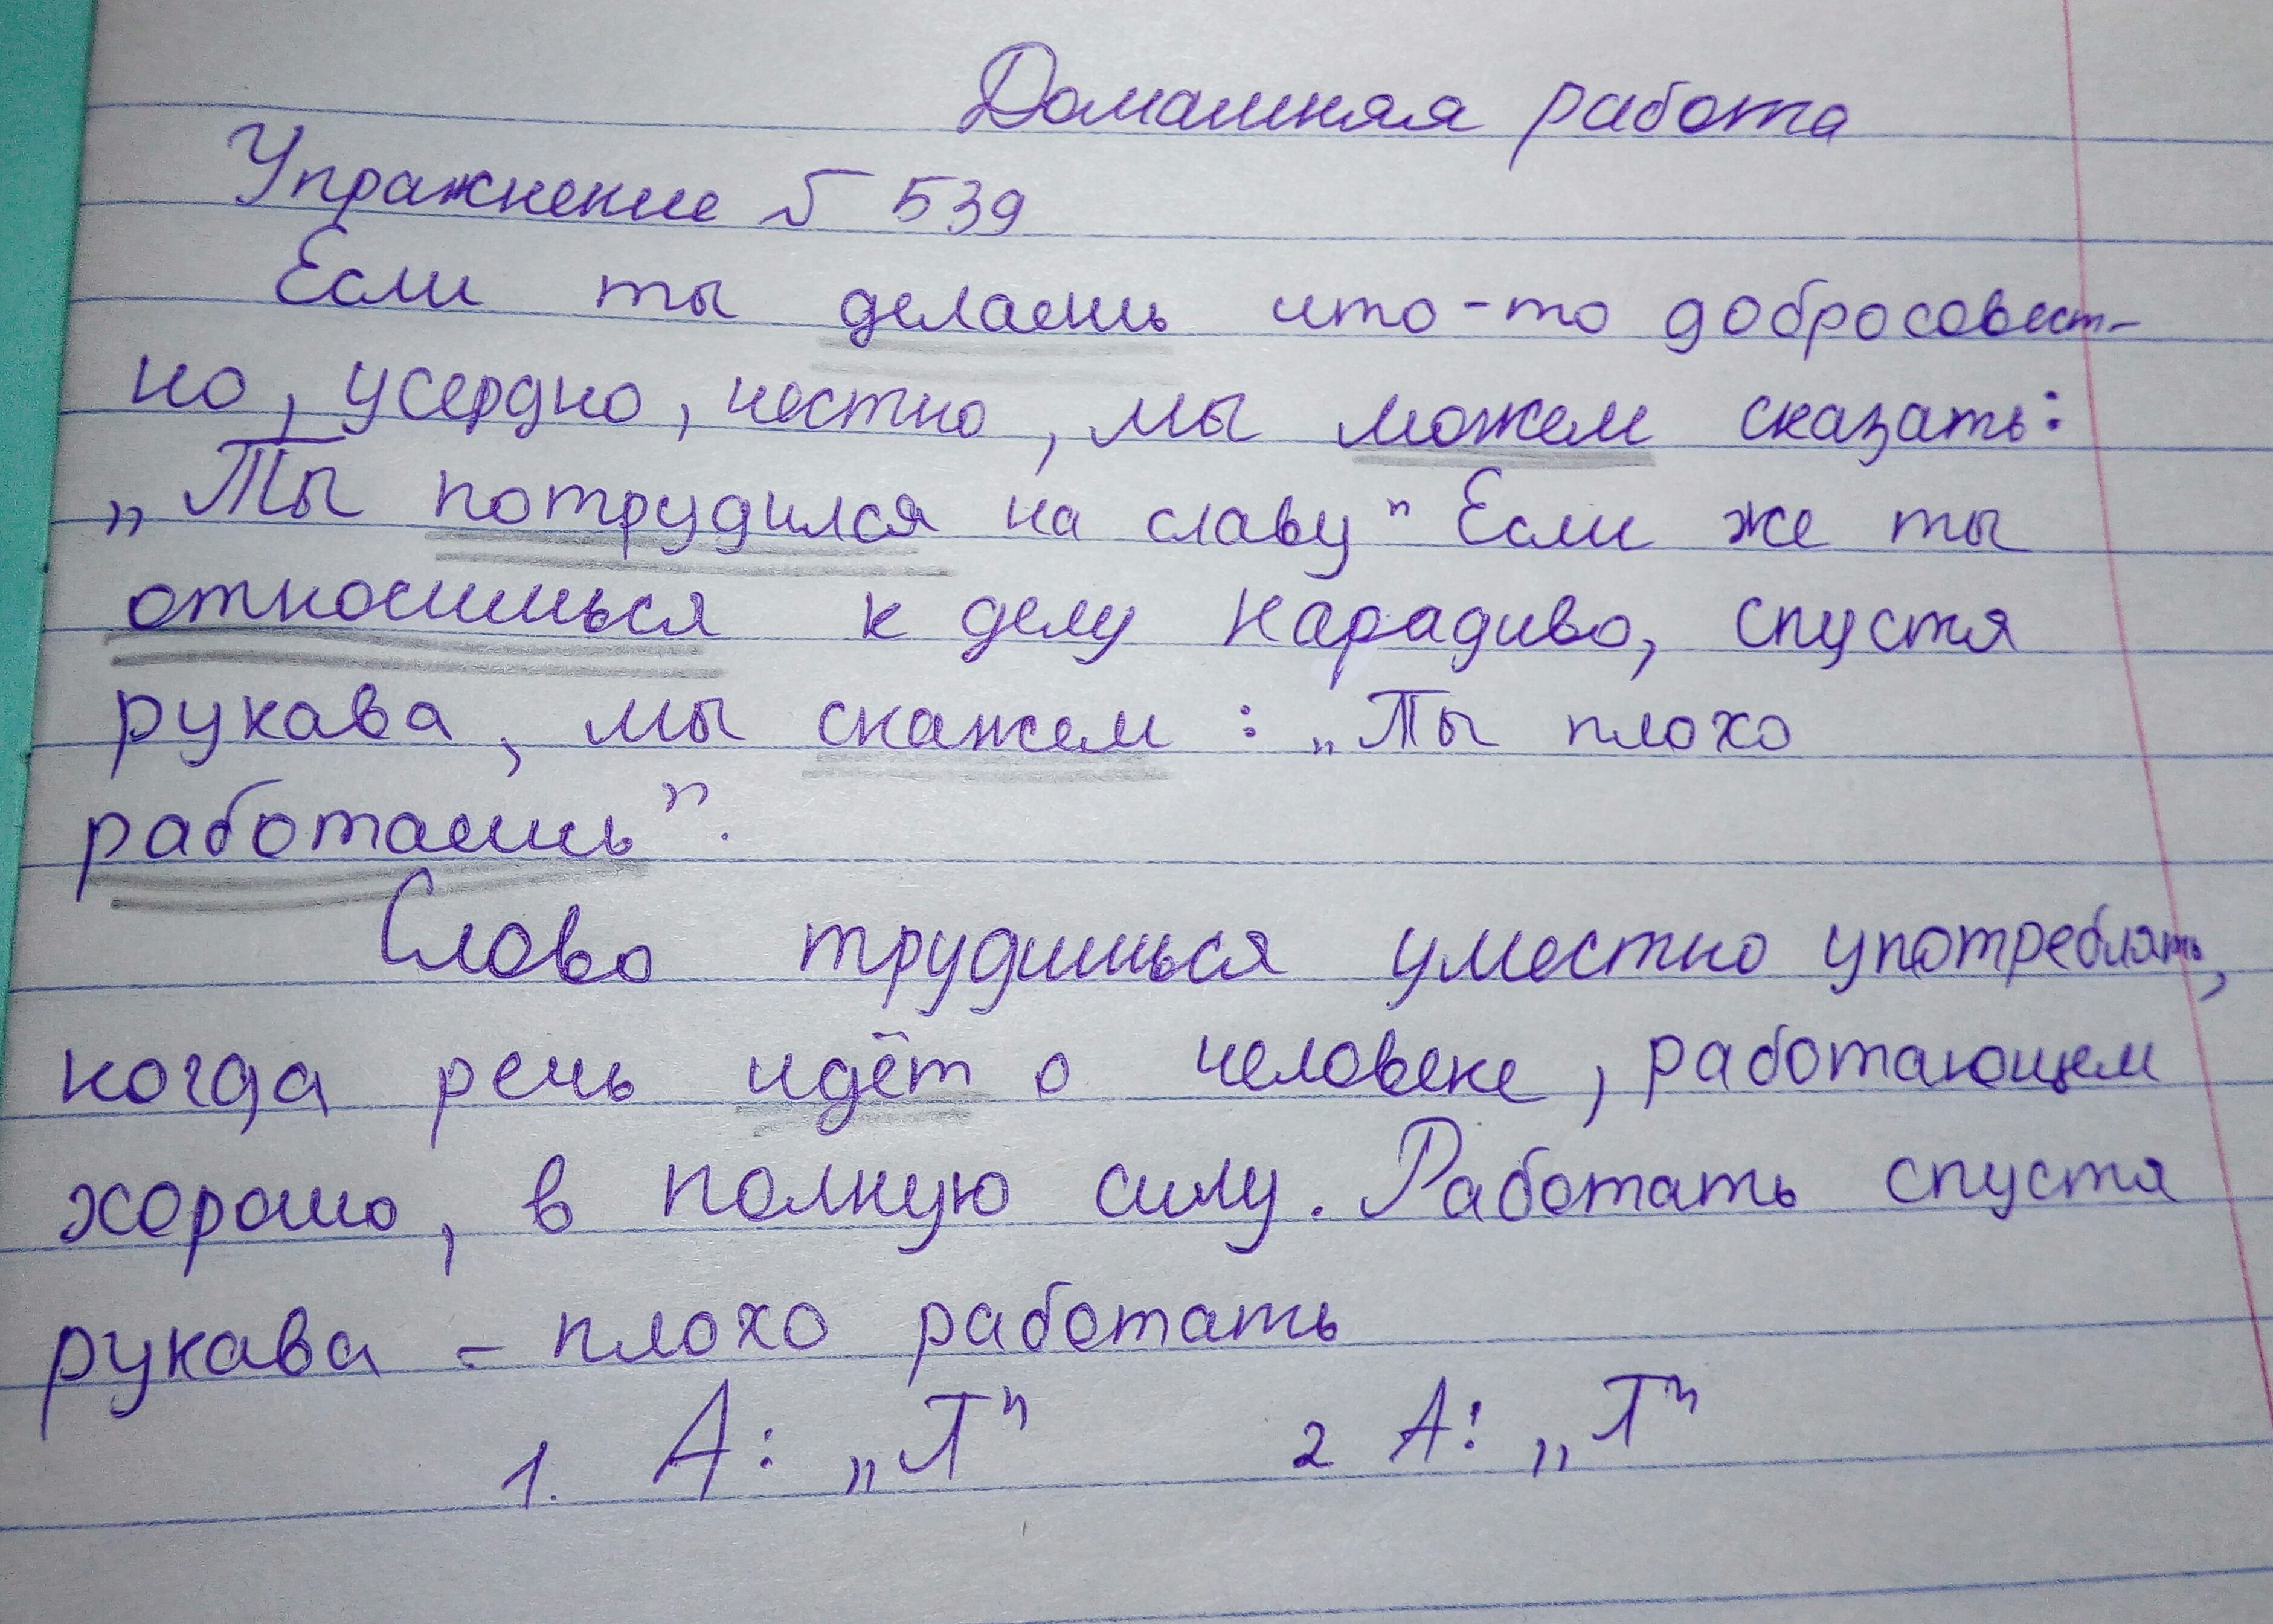 Домашняя работа
Упражнение № 539
Если ты делаешь что-то добросовест-
но, усердно, честно, мы можем сказать:
„Ты потрудился на славу" Если же ты
относишься к делу нарадиво, спустя
рукава, мы скажем: „Ты плохо
работаешь".
Слово трудишься уместно употреблять,
когда речь идёт о человеке, работающем
хорошо, в полную силу. Работать спустя
рукава - плохо работать
1. А: „П" 2 А: „П"